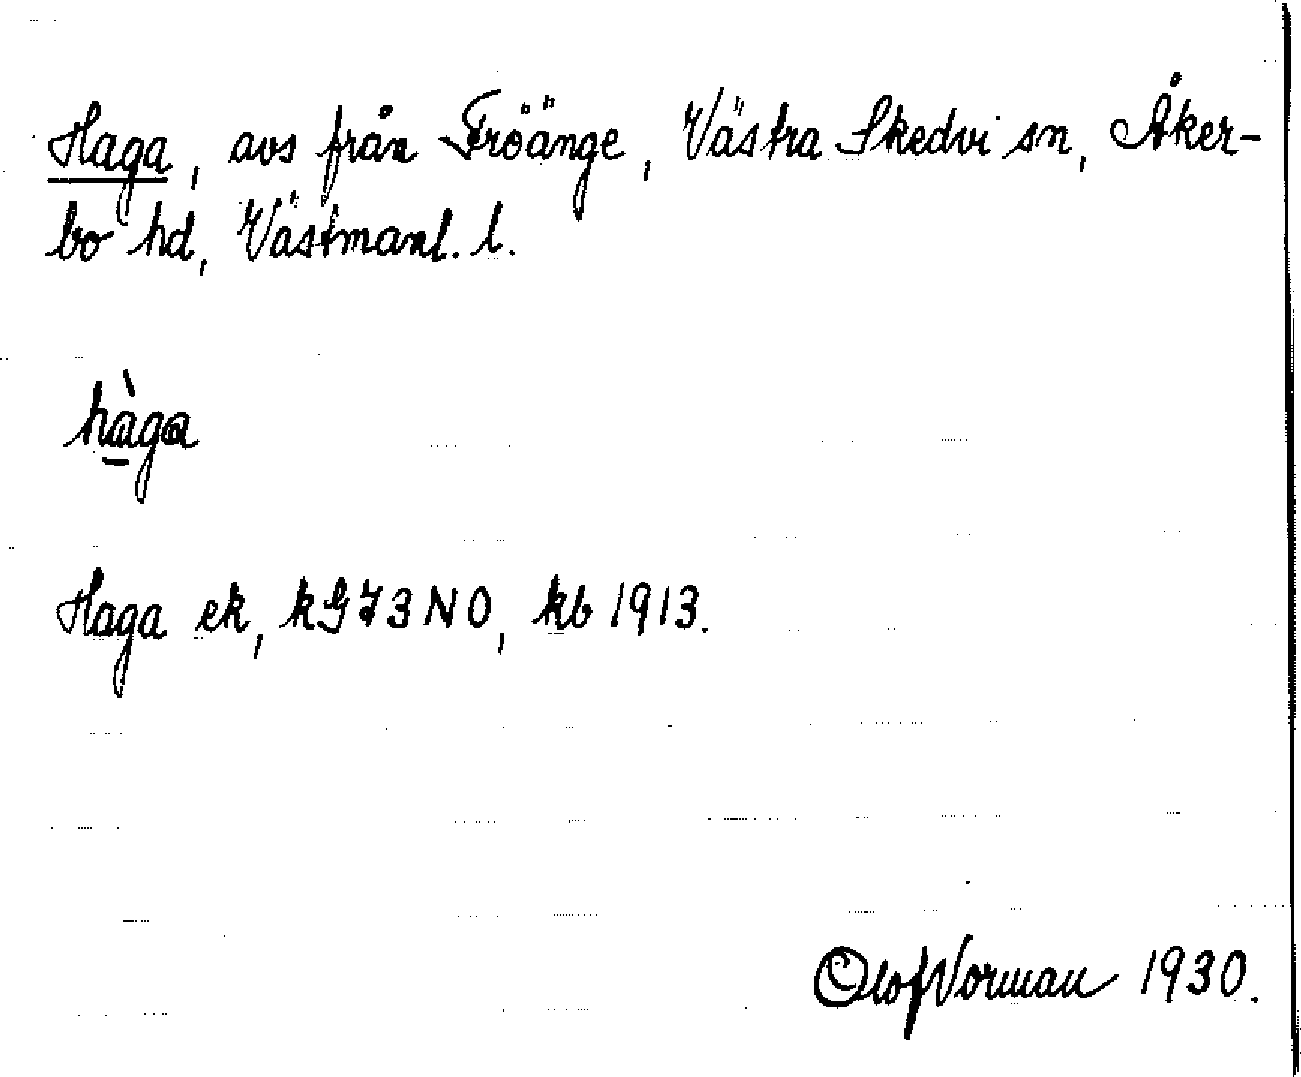 Haga, avs från Fröänge, Västra Skedvi sn, Åker-
bo hd, Västmanl. l.
hàga
Haga ek, kGJ3NO, kb 1913.
Olof Norman 1930.